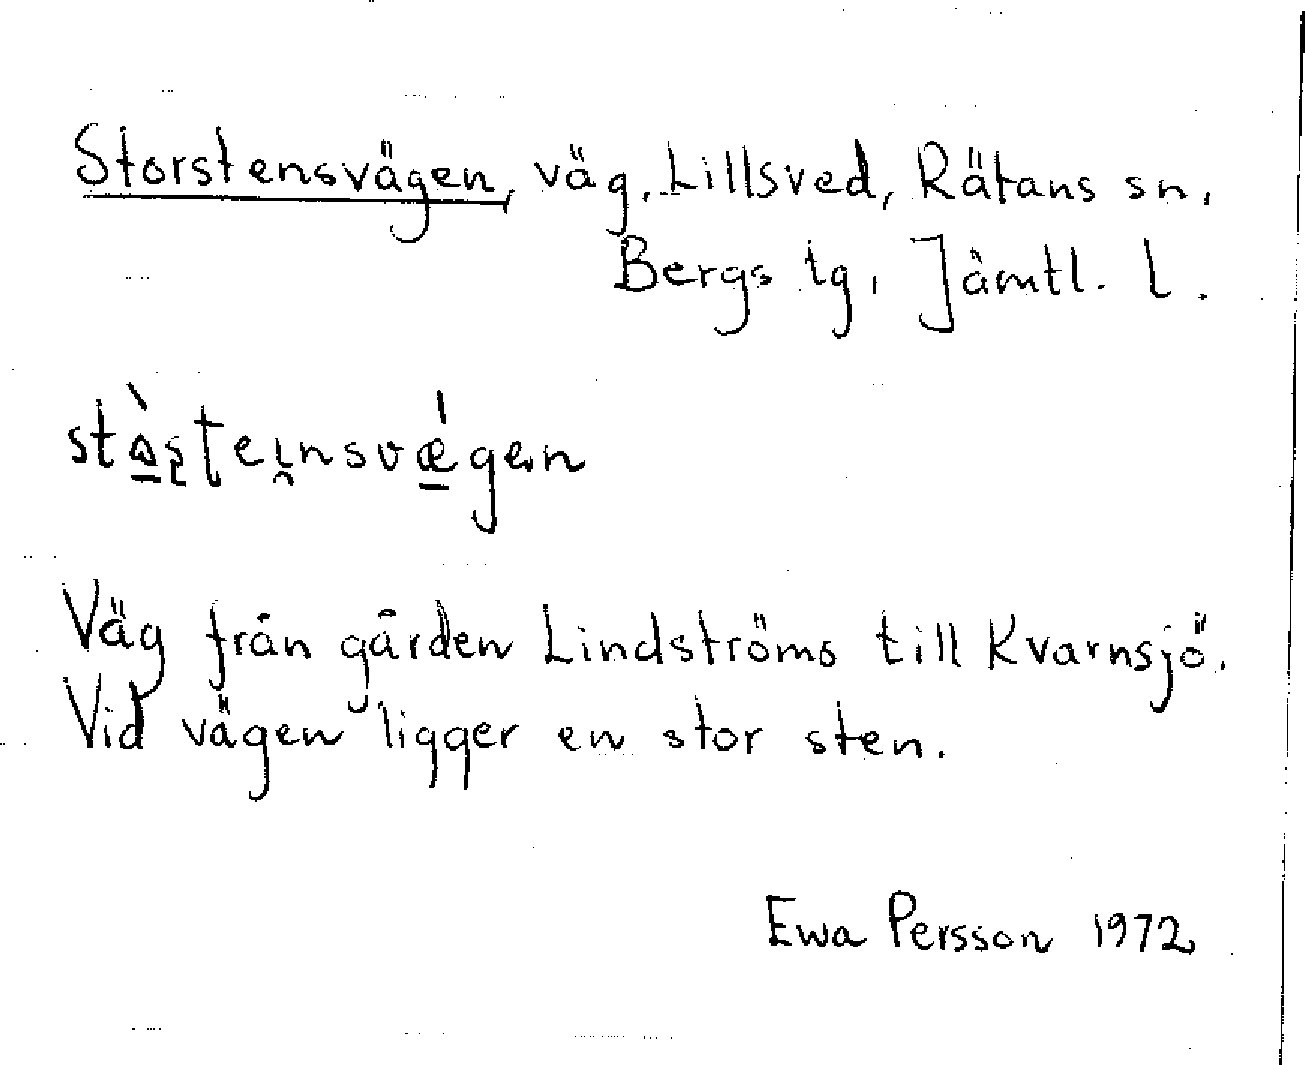 Storstensvägen, väg, Lillsved, Rätans sn,
Bergs tg, Jämtl. l.
stɑ̱̀ʂʈei̯nsvǽ̱gen
Väg från gården Lindströms till Kvarnsjö.
Vid vägen ligger en stor sten.
Ewa Persson 1972